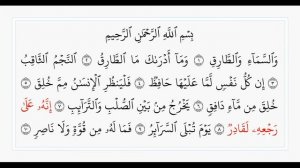 بِسْمِ ٱللَّهِ ٱلرَّحْمَٰنِ ٱلرَّحِيمِ
وَٱلسَّمَآءِ وَٱلطَّارِقِ ۝١ وَمَآ أَدْرَىٰكَ مَا ٱلطَّارِقُ ۝٢ ٱلنَّجْمُ ٱلثَّاقِبُ
۝٣ إِن كُلُّ نَفْسٍ لَّمَّا عَلَيْهَا حَافِظٌ ۝٤ فَلْيَنظُرِ ٱلْإِنسَٰنُ مِمَّ خُلِقَ ۝٥
خُلِقَ مِن مَّآءٍ دَافِقٍ ۝٦ يَخْرُجُ مِنۢ بَيْنِ ٱلصُّلْبِ وَٱلتَّرَآئِبِ ۝٧ إِنَّهُۥ عَلَىٰ
رَجْعِهِۦ لَقَادِرٌ ۝٨ يَوْمَ تُبْلَى ٱلسَّرَآئِرُ ۝٩ فَمَا لَهُۥ مِن قُوَّةٍ وَلَا نَاصِرٍ ۝١٠